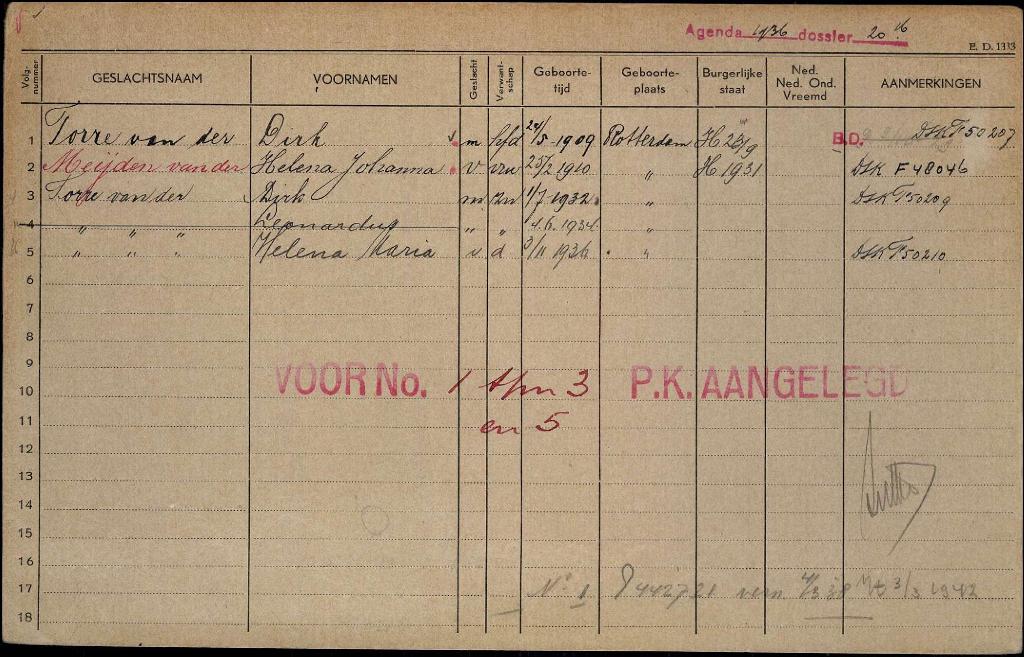 Agenda 1936 dossier 20
E. D. 1313
Volgnummer GESLACHTSNAAM VOORNAMEN Geslacht Verwantschap Geboortetijd Geboorteplaats Burgerlijke staat Ned. Ned. Ond. Vreemd AANMERKINGEN
1 Torre van der Dirk m hfd 5-1909 Rotterdam H B.D. DSK F 50207
2 Meijden van der Helena Johanna v vrw 25/2 1910 " H 1931 DSK F 48046
3 Torre van der Dirk m zn 1/7 1932 " DSK F 50209
4 " " " Leonardus " " 4.6.1934 "
5 " " " Helena Maria v d 3/11 1936 " DSK F 50210
6
7
8
9
10 VOOR No. 1 t/m 3 P.K. AANGELEGD
11 en 5
12
13
14
15
16
17 No 1 442721 vern 3/3 1942
18